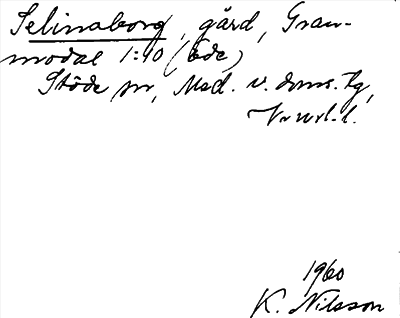 Selinaborg, gård, Gran-
modal 1:40 (Ede)
Stöde sn, Med. v. doms. tg,
Vnrl. l.
1960
K. Nilsson